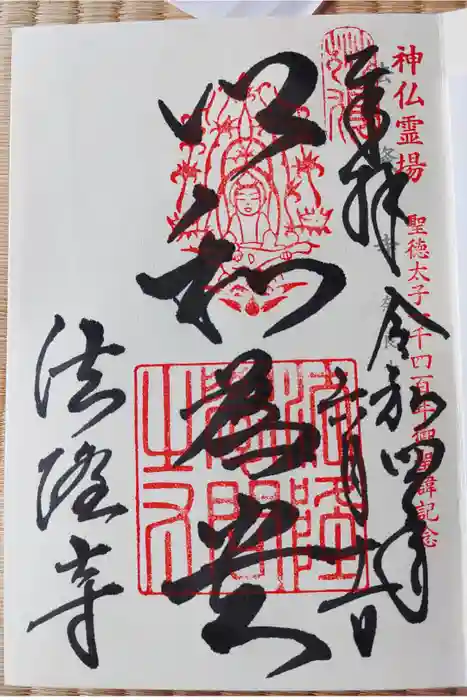 神仏霊場
聖徳太子一千四百年御聖諱記念
奉拝 令和四年
六月
以和為貴
法隆寺